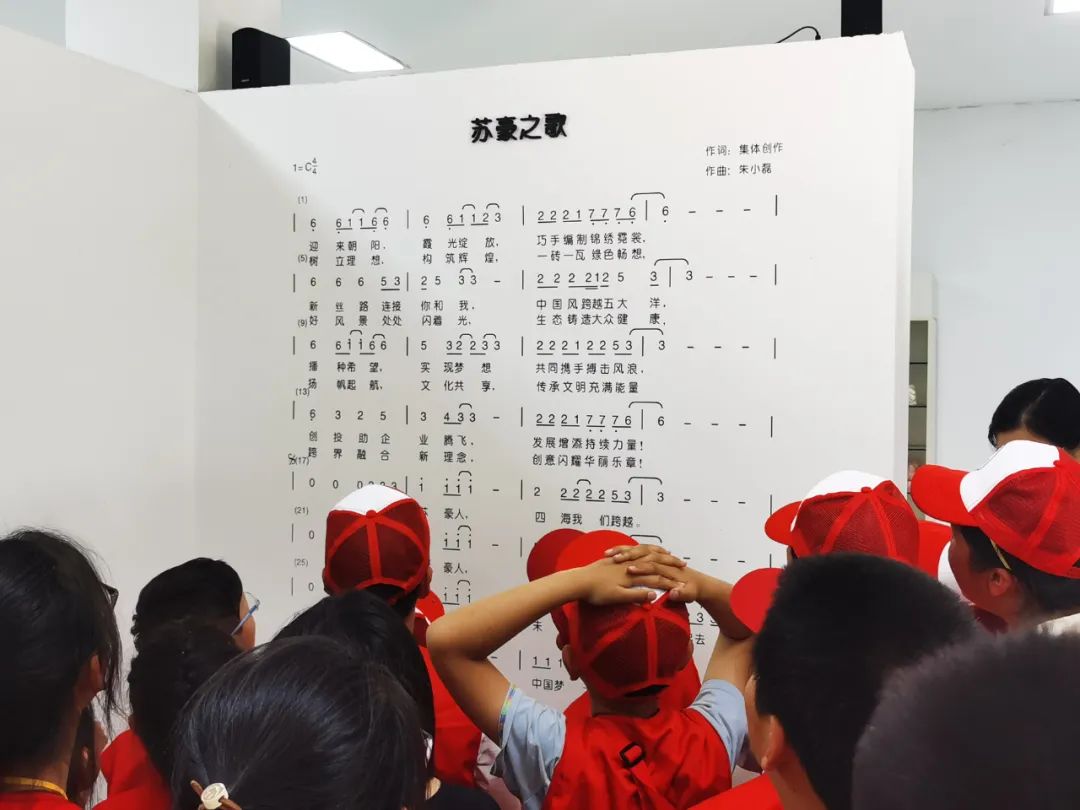 苏豪之歌
作词：集体创作
1=C 4/4
作曲：朱小磊
(1)
| 6 6 1 1 6 6 | 6 6 1 1 2 3 | 2 2 2 1 7 7 7 6 | 6 - - - |
迎 来朝 阳， 霞 光绽 放， 巧手编制锦绣霓裳，
(5) 树 立理 想， 构 筑辉 煌， 一砖一瓦 绿色畅想，
| 6 6 6 5 3 | 2 5 3 3 - | 2 2 2 2 1 2 5 3 | 3 - - - |
新 丝 路 连接 你和 我， 中国风跨越五大 洋，
(9) 好 风 景 处处 闪着 光， 生态铸造大众健 康，
| 6 6 1 1 6 6 | 5 3 2 2 3 3 | 2 2 2 1 2 2 5 3 | 3 - - - |
播 种希 望， 实 现梦 想 共同携手搏击风浪，
扬 帆起 航， 文 化共 享， 传承文明充满能量
(13)
| 6 3 2 5 | 3 4 3 3 - | 2 2 2 1 7 7 7 6 | 6 - - - |
创 投 助 企 业 腾飞， 发展增添持续力量！
跨 界 融 合 新 理念， 创意闪耀华丽乐章！
(17)
| 0 0 0 2 3 | 1 1 1 1 - | 2 2 2 2 2 5 3 | 3 - - - |
豪人， 四 海我 们跨越。
(21)
| 0 1 1 1 -
豪人，
(25)
| 0 1 1 1
朱 去
| 1 1 1
中国梦